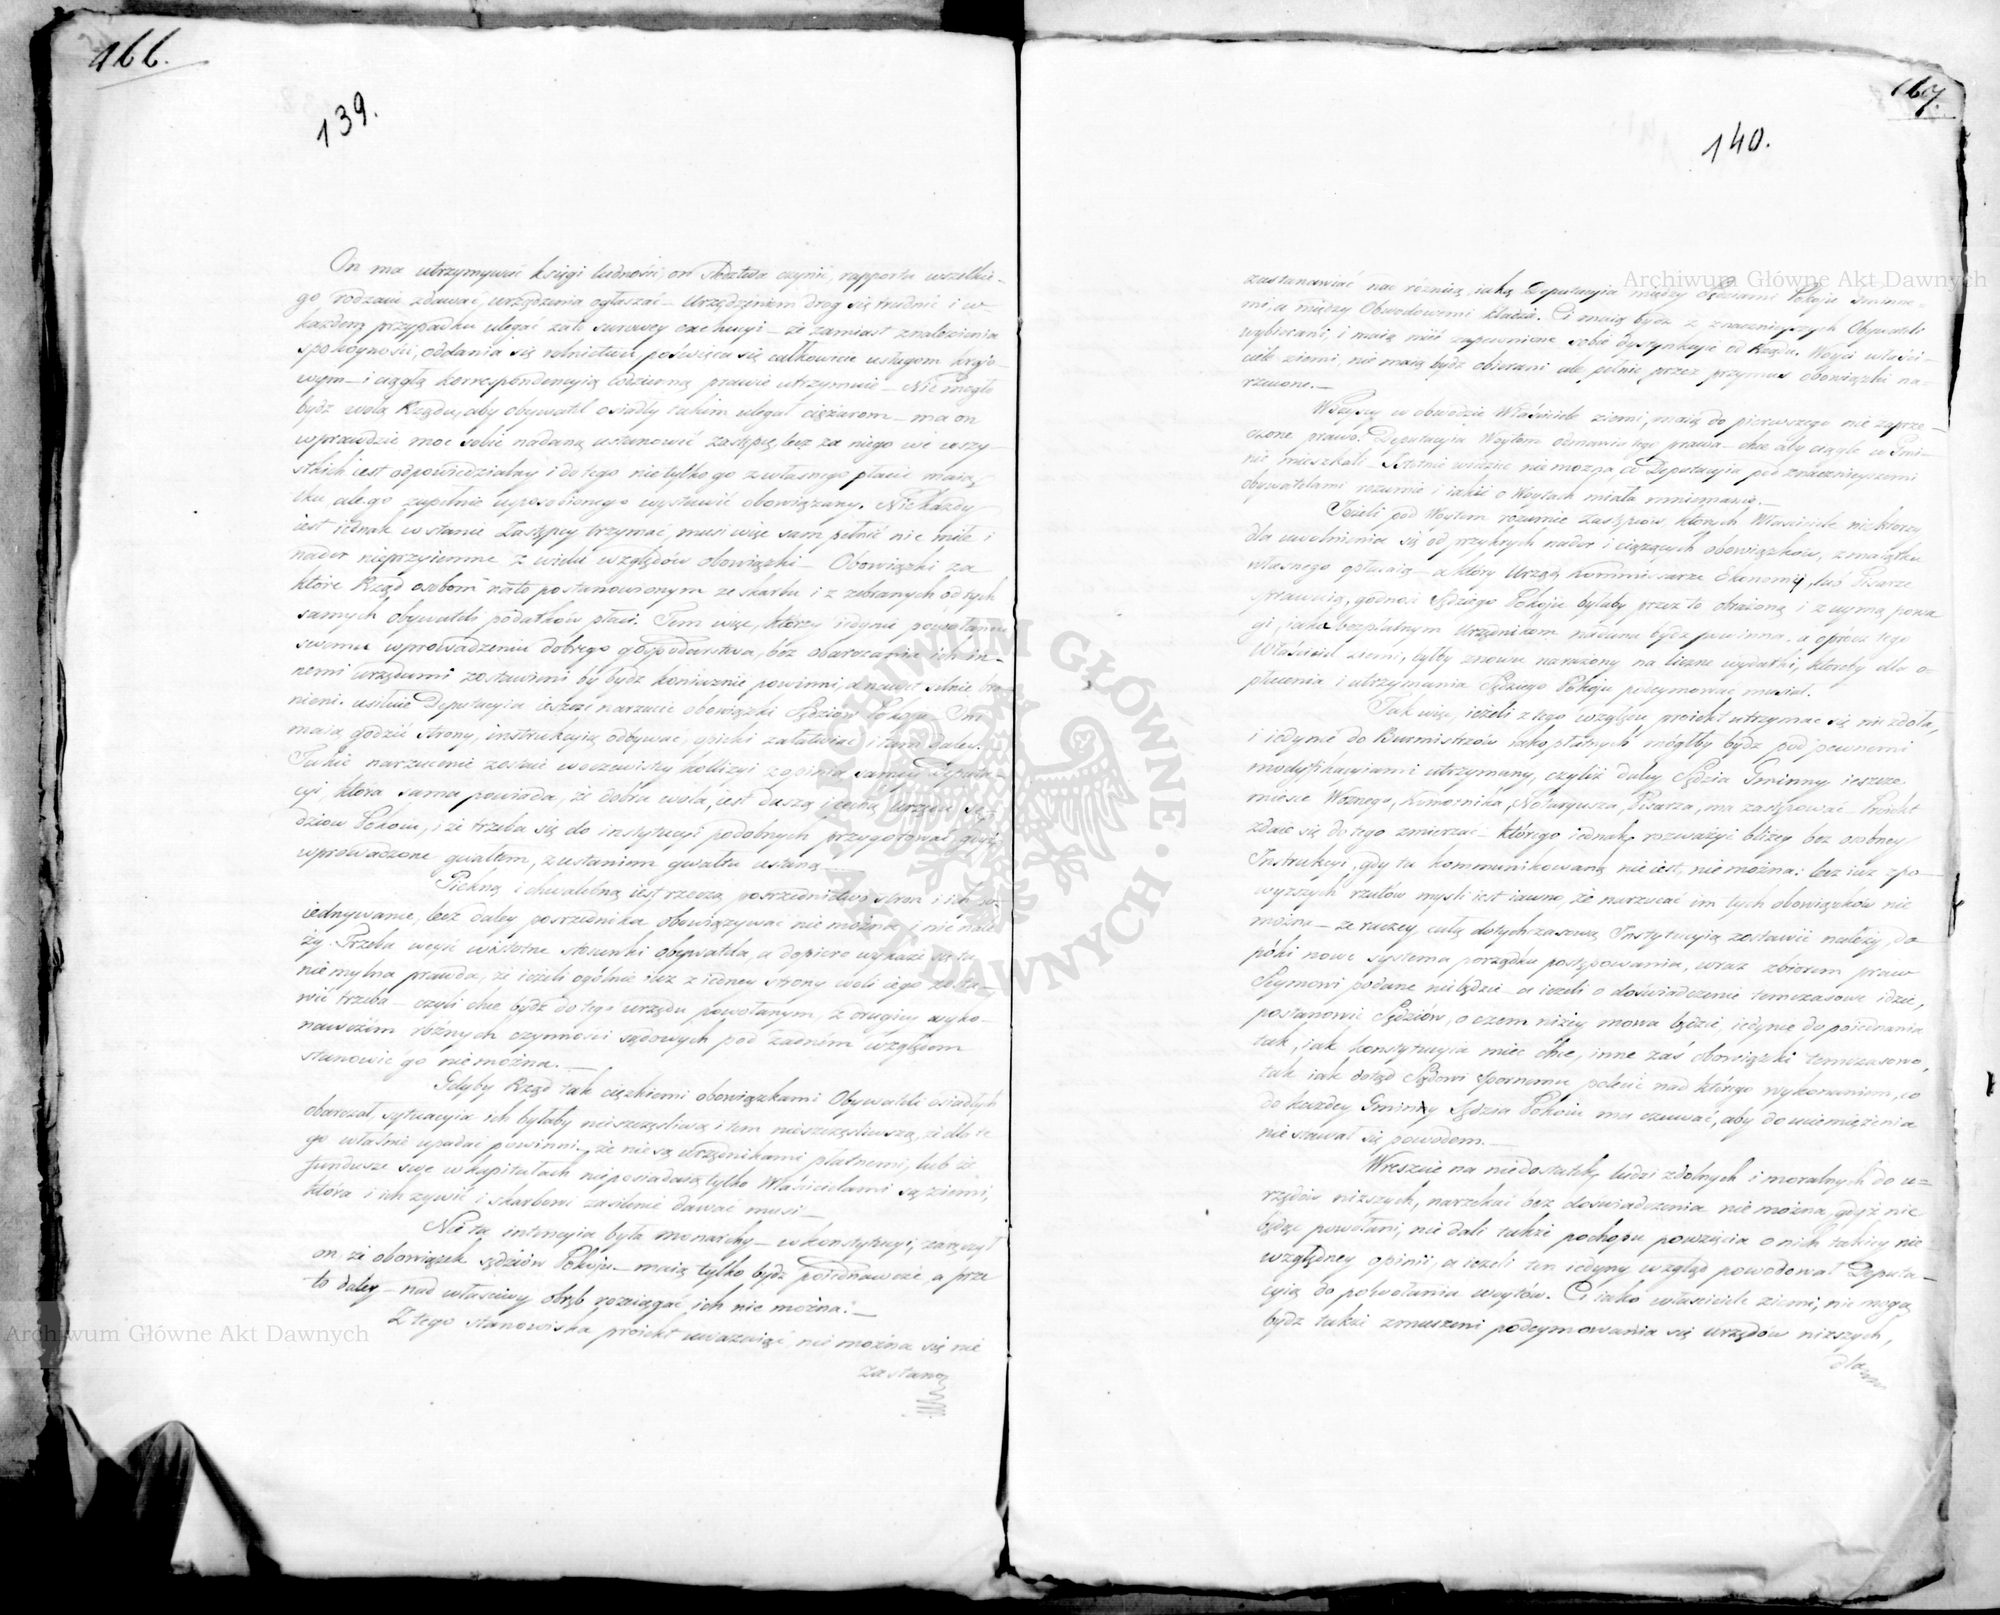 166.
139.
On ma utrzymywać księgi ludności, on śledztwa czynić, rapporta wszelkie-
go rodzaiu zdawać, urządzenia ogłaszać – Urządzeniem drog się trudnić i w
każdem przypadku ulegać zato surowey exekucyi – że zamiast znalezienia
spokoyności, oddania się rolnictwu, poświęca się całkowicie usługom krajo-
wym – i ciągłą korrespondencyią codzienną prawie utrzymuie – Nie mogło
bydź wolą Rządu, aby obywatel osiadły takim ulegał ciężarom – ma on
wprawdzie moc sobie nadaną ustanowić zastępcę, lecz za niego we wszy-
stkich iest odpowiedzialny i do tego nie tylko go z własnego płacić maią-
tku, ale go zupełnie usposobionego wystawić obowiązany. Nie każdy
iest iednak w stanie Zastępcy trzymać, musi więc sam pełnić nie miłe i
nader nieprzyiemne z wielu względów obowiązki – Obowiązki za
które Rząd osobom nato postanowionym ze skarbu i z zebranych od tych
samych obywateli podatków płaci. Tem więc, którzy iedynie powołaniu
swemu wprowadzeniu dobrego gospodarstwa, bez obarczania ich in-
nemi urzędami zostawieni by bydź koniecznie powinni, a nawet silnie bro-
nieni. usiłuie Deputacyia ieszcze narzucić obowiązki Sędziów Pokoju – Oni
maią godzić strony, instrukcyią odbywać, opieki załatwiać i tam daley.
Takie narzucenie zostaie w oczewistey kollizyi z opinią samey Deputa-
cyi, która sama powiada, że dobra wola, iest duszą i cechą Urzędu Sę-
dziów Pokoiu, i że trzeba się do instytucyi podobnych przygotować, gdyż
wprowadzone gwałtem, z ustaniem gwałtu ustaną –
Piękną i chwalebną iest rzeczą posrzednictwo stron i ich
iednywanie, lecz daley posrzednika obowiązywać nie można i nie nale-
ży. Trzeba weyść w istotne stosunki obywatela, a dopiero wykaże się ta
nie mylna prawda, że ieżeli ogólnie iuż z iedney strony woli iego zosta-
wić trzeba – czyli chce bydź do tego urzędu powołanym, z drugiey wyko-
nawcem różnych czynności sądowych pod żadnem względem
stanowić go nie można. –
Gdyby Rząd tak ciężkiemi obowiązkami Obywateli osiadłych
obarczał, sytuacyia ich byłaby nieszczęśliwą i tem nieszczęśliwszą, że dla te
go właśnie upadać powinni, że nie są urzędnikami płatnemi, lub że
fundusze swe w kapitałach nie posiadaią, tylko Właścicielami są ziemi,
która i ich żywić i skarbowi zasilenie dawać musi –
Nie ta intencyia była monarchy – w konstytucyi, zaręczył
on, że obowiązek Sędziów Pokoju – maią tylko bydź poiednawcze, a prze
to daley – nad właściwy obręb rozciągać ich nie można. –
Z tego stanowiska proiekt uważaiąc, nie można się nie
zastano
167.
140.
zastanawiać nad różnicą, iaką Deputacyia między Sędziami Pokoju Gminne-
mi, a między Obwodowemi kładzie. Ci maią bydź z znacznieyszych Obywateli
wybierani, i maią mieć zapewnione sobie dystynkcye od Rządu. Woyci właści-
ciele ziemi, nie maią bydź obierani ale pełnić przez przymus obowiązki na-
rzucone. –
Wszyscy w obwodzie Właściciele ziemi, maią do pierwszego nie zaprze-
czone prawo. Deputacyia Woytom odmawia tego prawa – chce aby ciągle w Gmi-
nie mieszkali – Istotnie wiedzieć nie można co Deputacyia pod znacznieyszemi
obywatelami rozumie i iakie o Woytach miała mniemanie. –
Jeżeli pod Woytem rozumie Zastępców, których Właściciele niektorzy
dla uwolnienia się od przykrych nader i ciążących obowiązków, z maiątku
własnego opłacaią – a który Urząd Kommissarze Ekonomij, lub Pisarze
sprawuią, godność Sędziego Pokoju byłaby przez to obrażoną i z uymą powa
gi, iaka bezpłatnym Urzędnikom nadana bydź powinna. a oprócz tego
Właściciel ziemi, byłby znowu narażony na liczne wydatki, któreby dla o-
płacenia i utrzymania Sędziego Pokoju podeymować musiał.
Tak więc, ieżeli z tego względu proiekt utrzymać się nie zdoła,
i iedynie do Burmistrzów iako płatnych mógłby bydź pod pewnemi
modyfikacyiami utrzymany, czyliż daley Sędzia Gminny ieszcze
miesce Woźnego, Komornika, Notaryusza, Pisarza, ma zastępować – Proiekt
zdaie się do tego zmierzać – którego iednak, rozważyć bliżey bez osobney
Instrukcyi, gdy ta kommunikowaną nie iest, nie można: lecz iuż z po-
wyższych rzutów mysli iest iawno, że narzucać im tych obowiązków nie
można – że raczey całą dotychczasową Instytucyią zostawić należy, do-
póki nowe systema porządku postępowania, wraz zbiorem praw
Seymowi podane nie będzie – a ieżeli o doświadczenie tymczasowe idzie,
postanowić Sędziów, o czem niżey mowa będzie, iedynie do poiednania
tak, iak konstytucyia mieć chce, inne zaś obowiązki tymczasowo,
tak iak dotąd Sądowi Spornemu polecić nad którego wykonaniem, co
do każdey Gminy Sędzia Pokoiu ma czuwać, aby do uciemiężenia
nie stawał się powodem. –
Wreszcie na niedostatek ludzi zdolnych i moralnych do u-
rzędów niższych, narzekać bez doświadczenia nie można, gdyż nie
będąc powołani, nie dali także pochopu powzięcia o nich takiey nie-
względney opinii, a ieżeli ten iedyny wzgląd powodował Deputa-
cyią do powołania woytów. Ci iako właściciele ziemi, nie mogą
bydź także zmuszeni podeymowania się urzędów niższych,
dla
Archiwum Główne Akt Dawnych
Archiwum Główne Akt Dawnych
ARCHIWUM GŁÓWNE AKT DAWNYCH